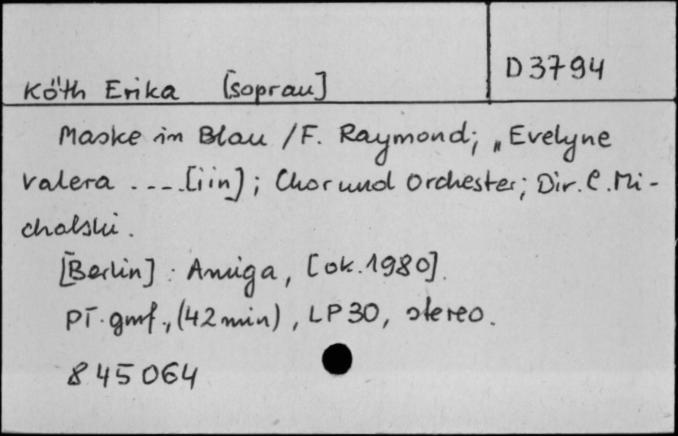 D 3794
Köth Erika [sopran]
Maske in Blau / F. Raymond; „Evelyne
Valera ---- [i in]; Chor und Orchester; Dir. C. Mi-
chalski.
[Berlin]: Amiga, [ok. 1980].
Pł. gmf., (42 min), LP 30, stereo.
8 45 064